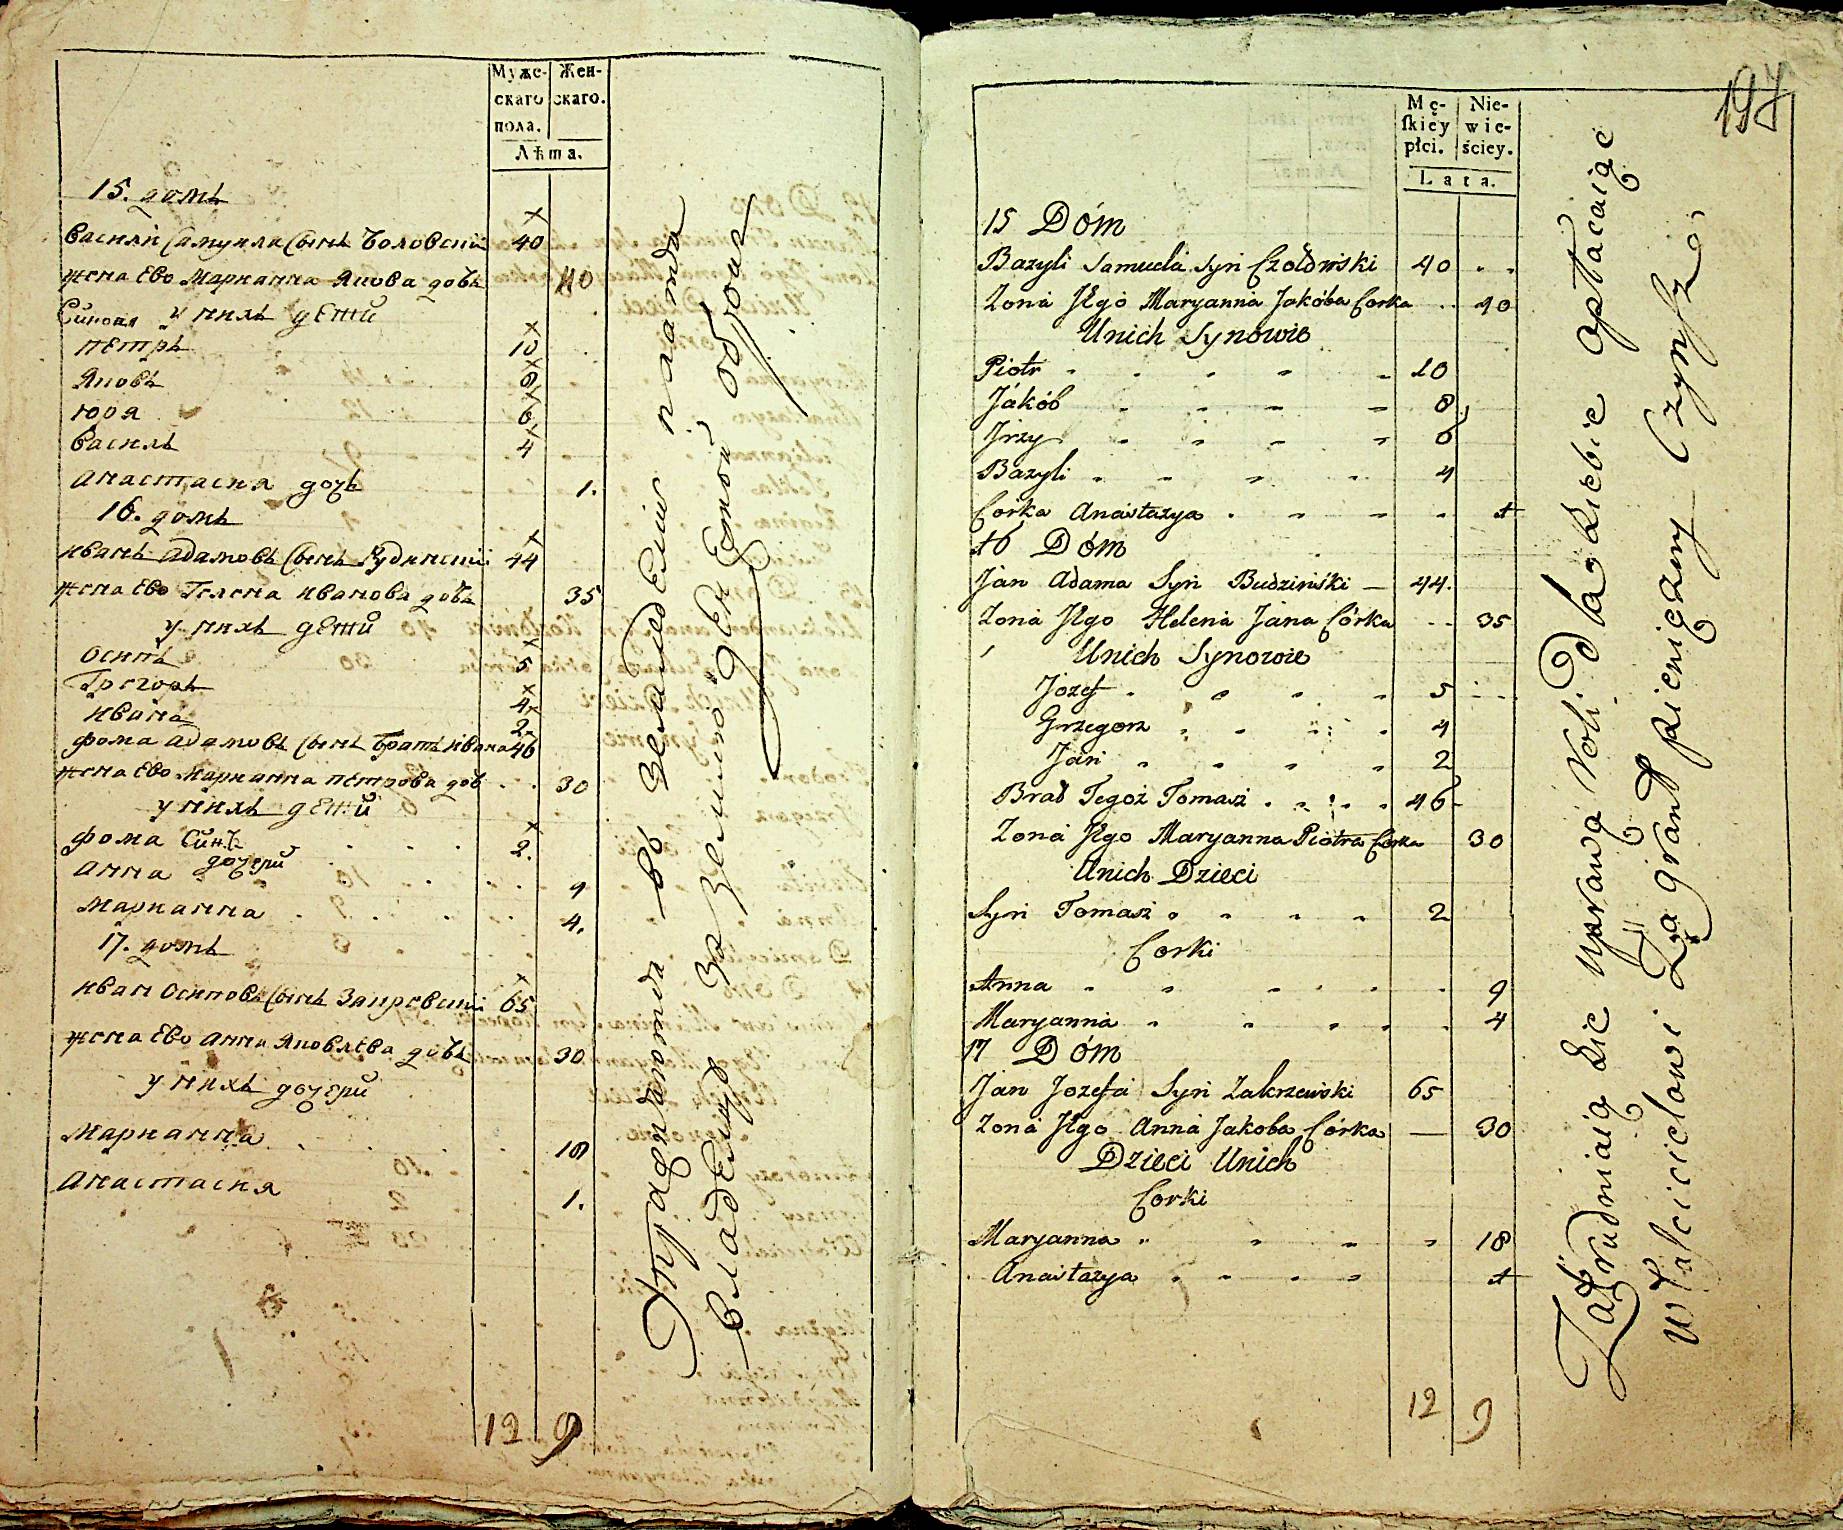 Муже-
скаго
пола.
Жен-
скаго.
Лѣта.
15. домъ
Василй Самуила Сынъ Чоловскій 40
жена Ево Марианна Якова дочь 40
Синовя у нихъ дети
Петръ 10
Яковъ 8
Юря 6
Василь 4
Анастасия дочь 1.
16. домъ
Иванъ Адамовъ Сынъ Будинскій 44
жена Ево Гелена Иванова дочь 35
у нихъ дети
Осипъ 5
Грегоръ 4
Ивана 2
Фома Адамовъ Сынъ братъ Ивана 46
жена Ево Марианна Петрова доч 30
у нихъ дети
Фома Синъ 2.
дочери
Анна 9
Марианна 4.
17. домъ
Иван Осиповъ Сынъ Закревскій 65
жена Ево Анна Яковлева дочь 30
у нихъ дочери
Марианна 18
Анастасия 1.
12 9
въ земледелии платя
владелцу за землю денежной оброкъ
197
Mę-
ſkiey
płci.
Nie-
wie-
ściey.
Lata.
15 Dóm
Bazyli Samuela Syn Czołowski 40
Zona Jego Maryanna Jakóba Corka 40
Unich Synowie
Piotr 10
Jakób 8
Jrzy 6
Bazyli 4
Corka Anastazya 1
16 Dóm
Jan Adama Syn Budzinski 44.
Zona Jego Helena Jana Córka 35
Unich Synowie
Jozef 5
Grzegorz 4
Jan 2
Brad Tegoż Tomasz 46
Zona Jego Maryanna Piotra Corka 30
Unich Dzieci
Syn Tomasz 2
Corki
Anna 9
Maryanna 4
17 Dóm
Jan Jozefa Syn Zakrzewski 65
Zona Jego Anna Jakoba Córka 30
Dzieci Unich
Corki
Maryanna 18
Anastazya 1
12 9
Zatrudniaią Sie uprawą Roli dla Siebie opłacaiąc
właścicielowi Za grunt pienięczny Czynſz.